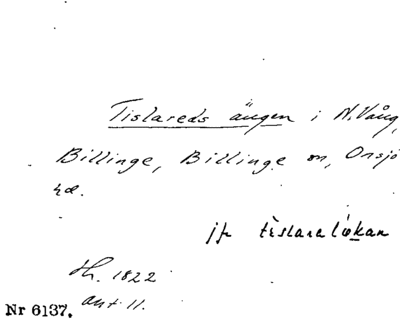 Tislareds ängen i N. Vång,
Billinge, Billinge sn, Onsjö
hd.
jfr tislaralyckan
Hr. 1822
ant. 11.
Nr 6137.